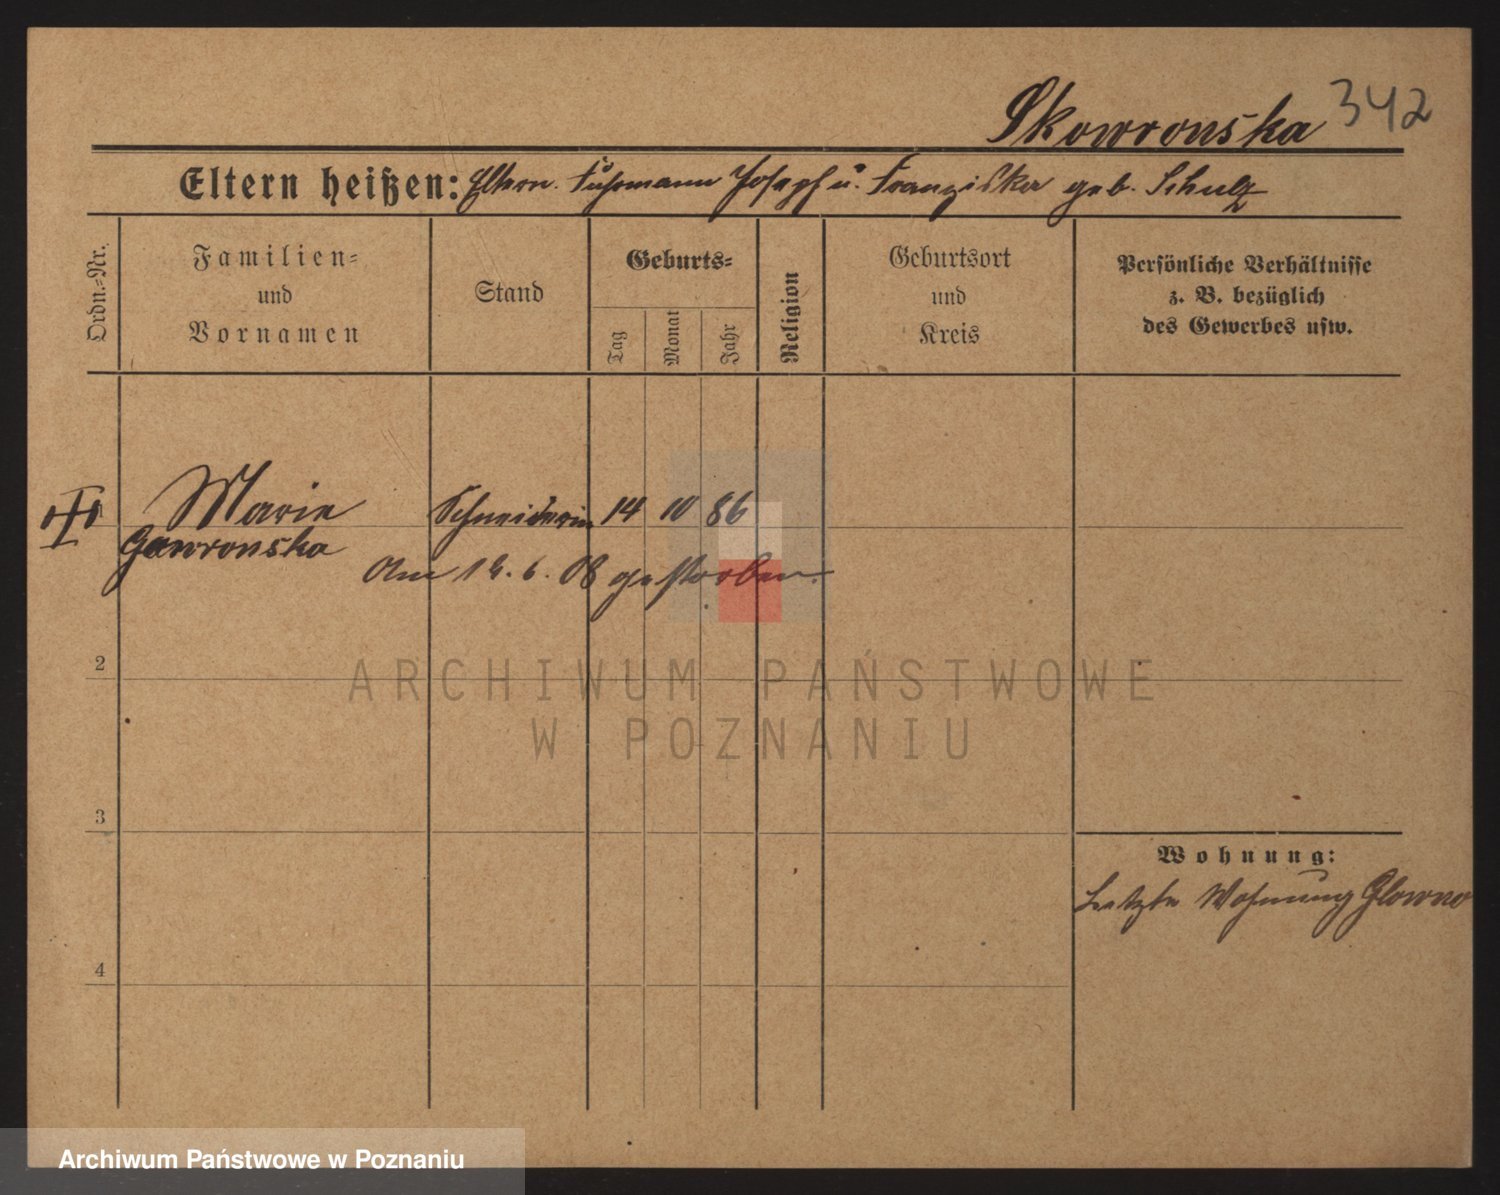 Skowronska 342
Eltern heißen: Eltern. Fuhrmann Joseph u. Franziska geb. Schulz
Ordn.-Nr.
Familien-
und
Vornamen
Stand
Geburts-
Tag
Monat
Jahr
Religion
Geburtsort
und
Kreis
Persönliche Verhältnisse
z. B. bezüglich
des Gewerbes usw.
Marie Schneiderin 14 10 86
Gawronska
Am 16. 6. 08 gestorben.
2
ARCHIWUM PAŃSTWOWE
W POZNANIU
3
Wohnung:
Letzte Wohnung Glowno
4
Archiwum Państwowe w Poznaniu